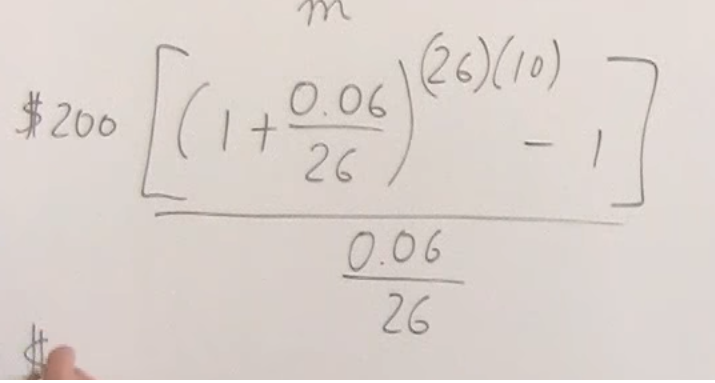 m
$200 [(1 + 0.06/26)^(26)(10) - 1]
0.06/26
$